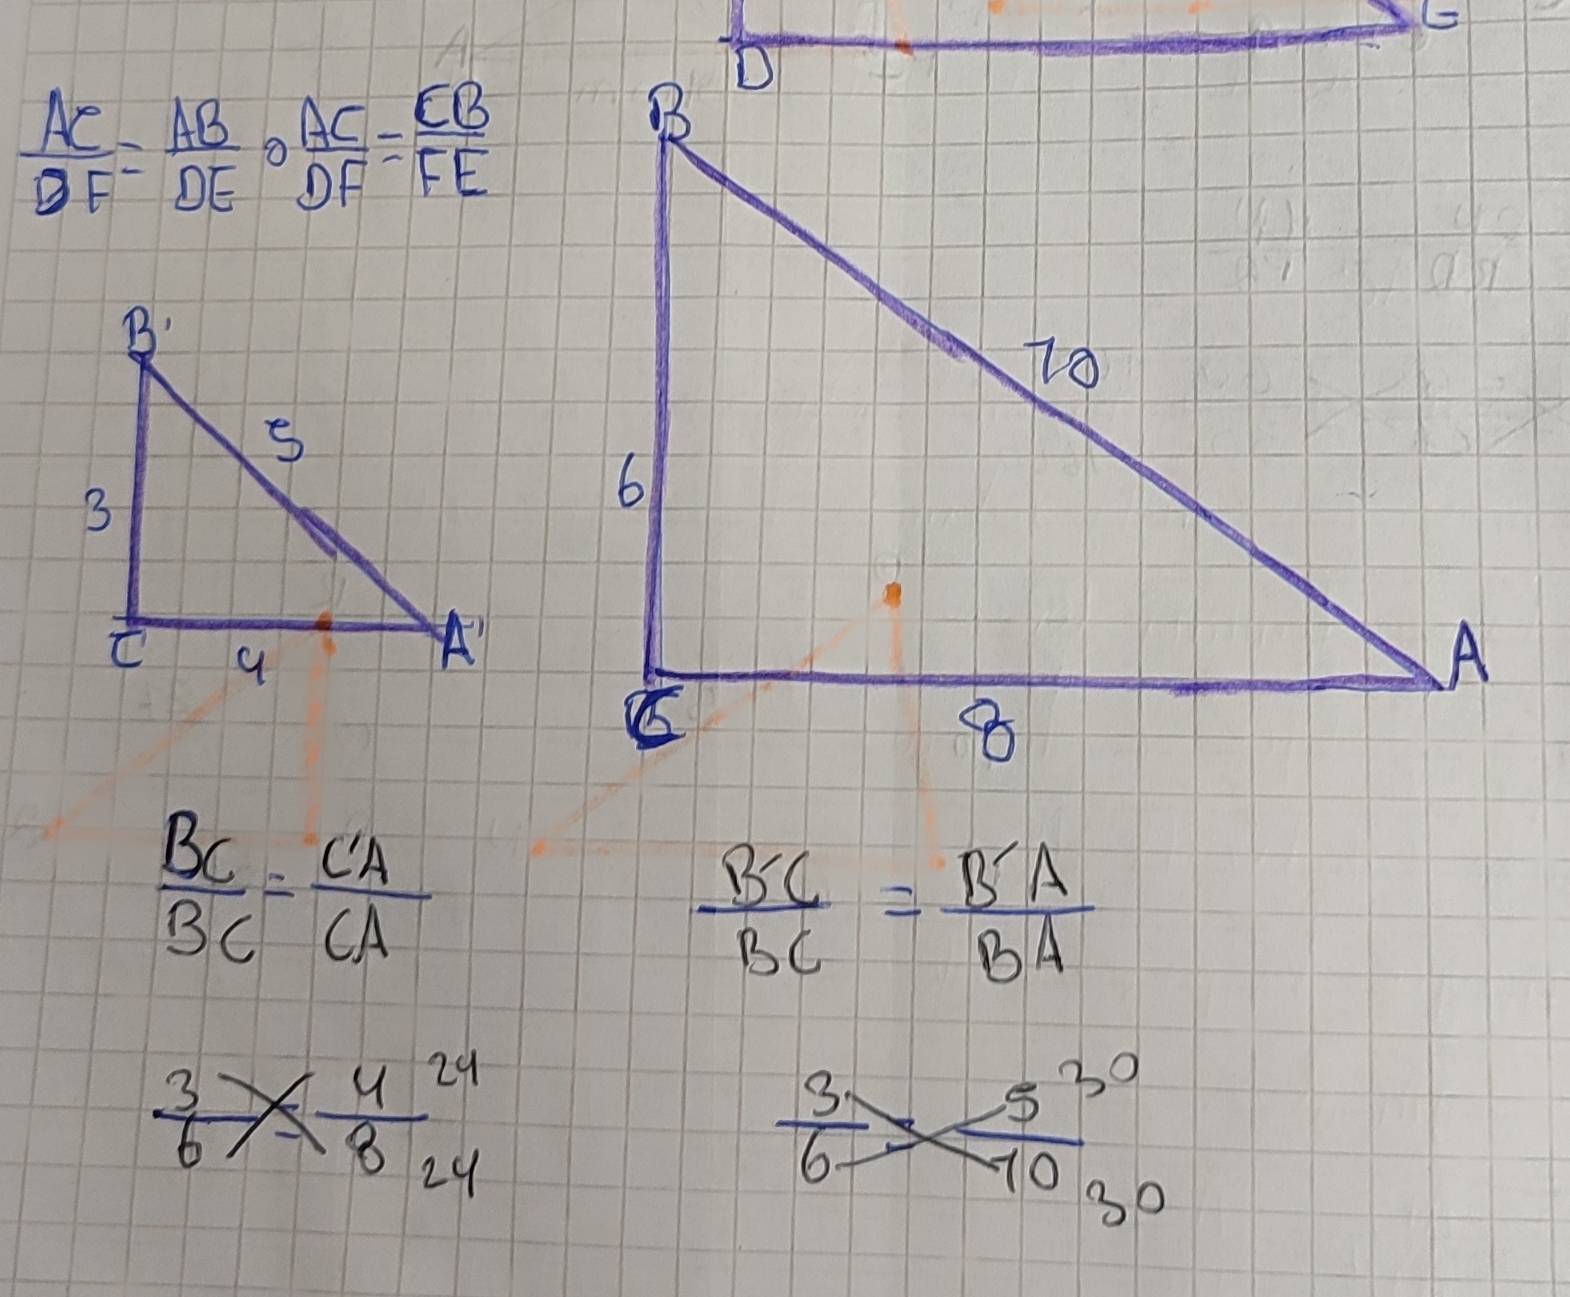 D
AC/DF = AB/DE o AC/DF = CB/FE
B
B'
10
5
6
3
C
4
A'
A
C
8
BC/BC = C'A/CA
B'C/BC = B'A/BA
3/6 = 4/8 24 24
3/6 = 5/10 30 30